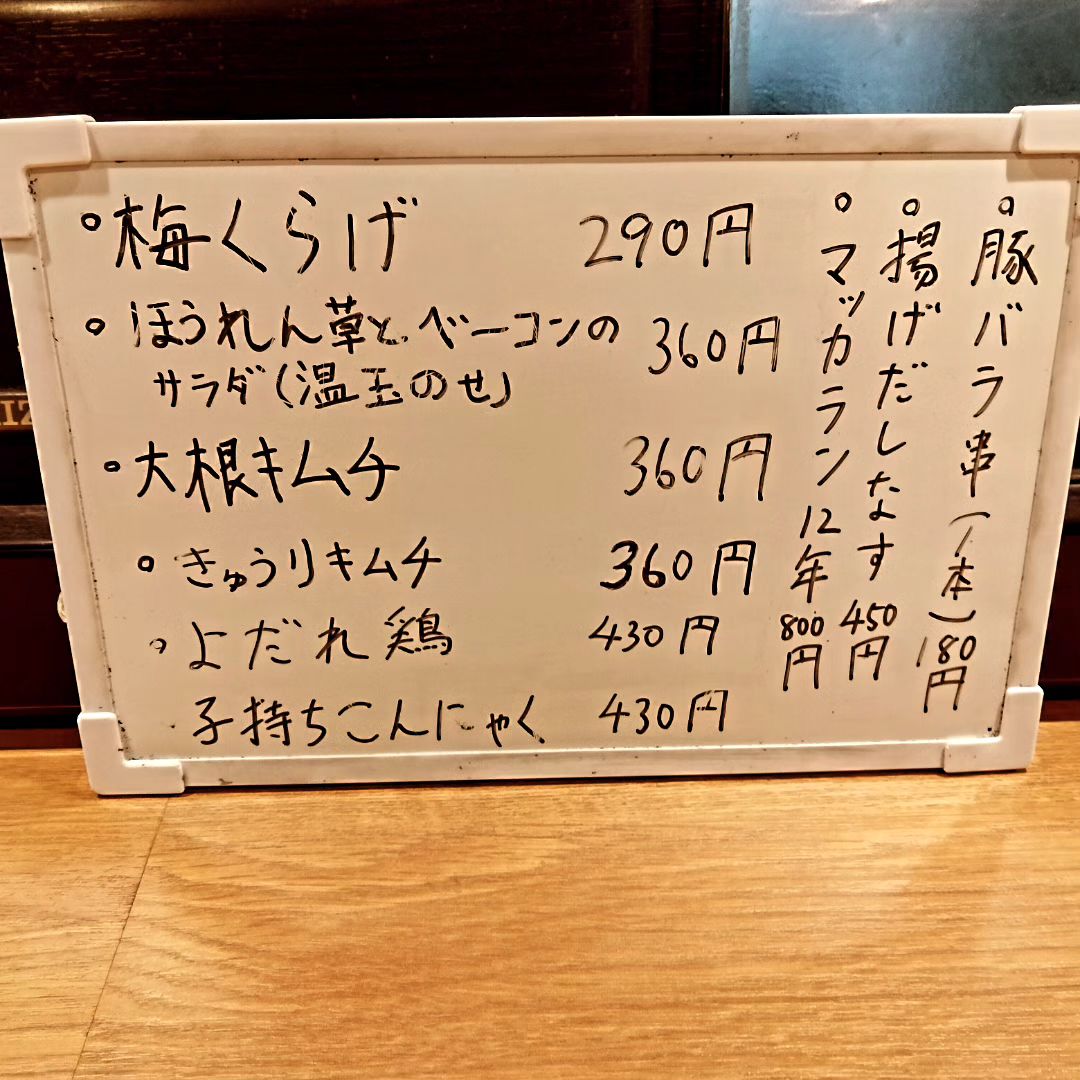 梅くらげ 290円
ほうれん草とベーコンの
サラダ(温玉のせ) 360円
大根キムチ 360円
きゅうりキムチ 360円
よだれ鶏 430円
子持ちこんにゃく 430円
豚バラ串(1本)180円
揚げだしなす450円
マッカラン12年800円